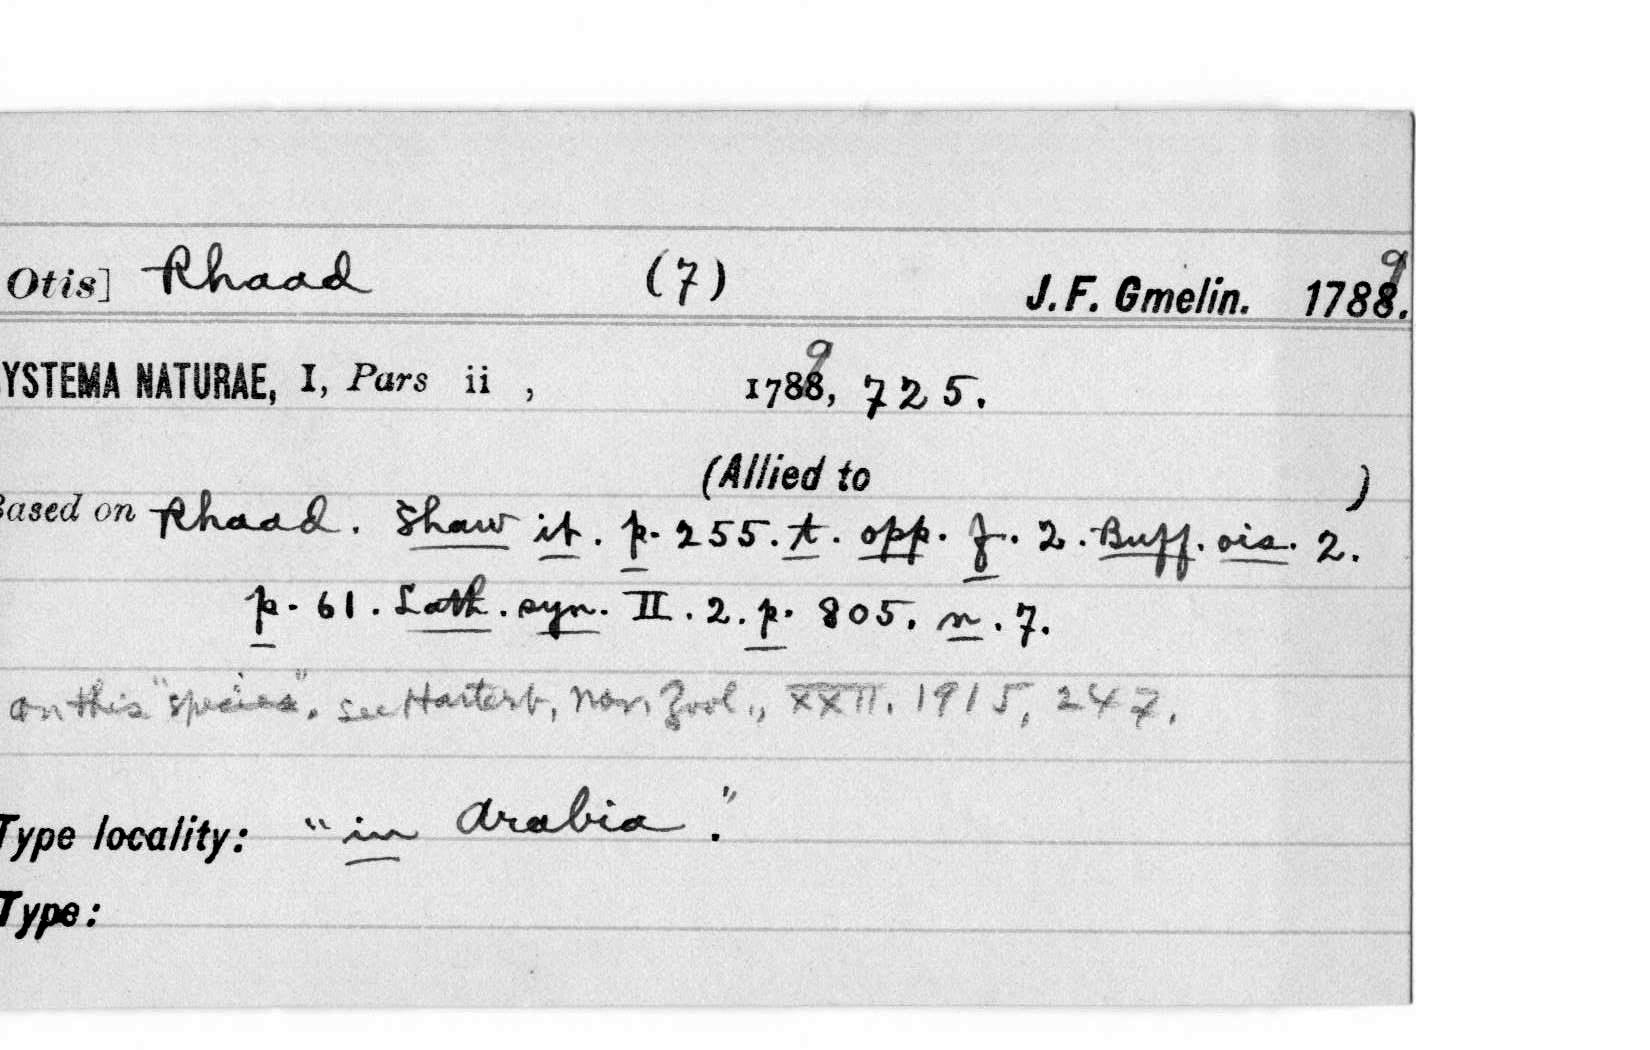 Otis] Rhaad (7) J. F. Gmelin. 1789.
YSTEMA NATURAE, I, Pars ii , 1789, 725.
(Allied to )
Based on Rhaad. Shaw it. p. 255. t. opp. f. 2. Buff. ois. 2.
p. 61. Lath. syn. II. 2. p. 805. n. 7.
on this "species", see Hartert, Nov. Zool., XXII. 1915, 247.
Type locality: "in Arabia."
Type: